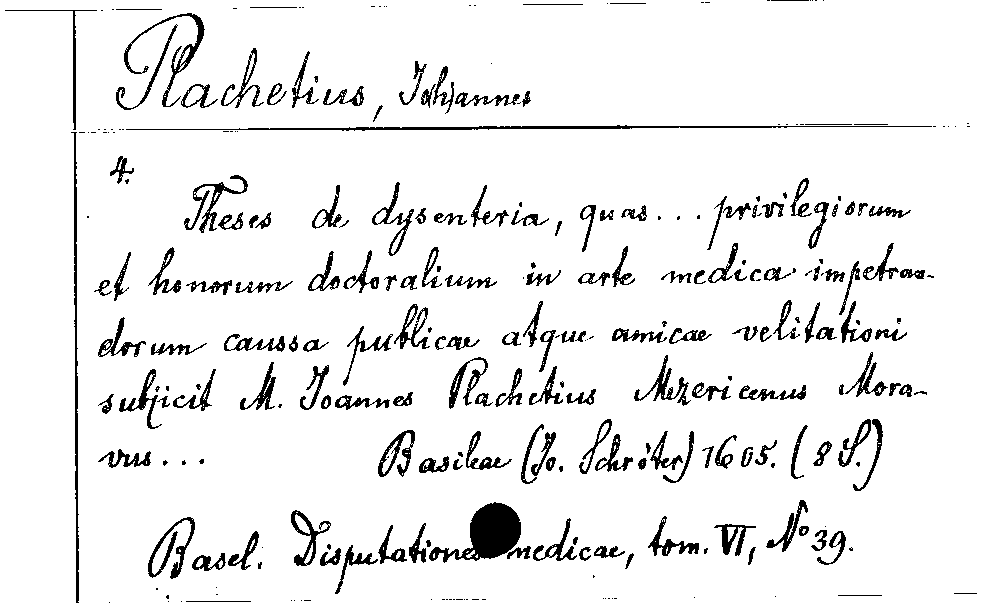 Plachetius, Jo(h)annes
4.
Theses de dysenteria, quas... privilegiorum
et honorum doctoralium in arte medica impetran-
dorum caussa publicae atque amicae velitationi
subjicit M. Joannes Plachetius Mezericenus Mora-
vus...
Basileae (Jo. Schröter) 1605. (8 S.)
Basel. Disputationes medicae, tom. VI, No 39.